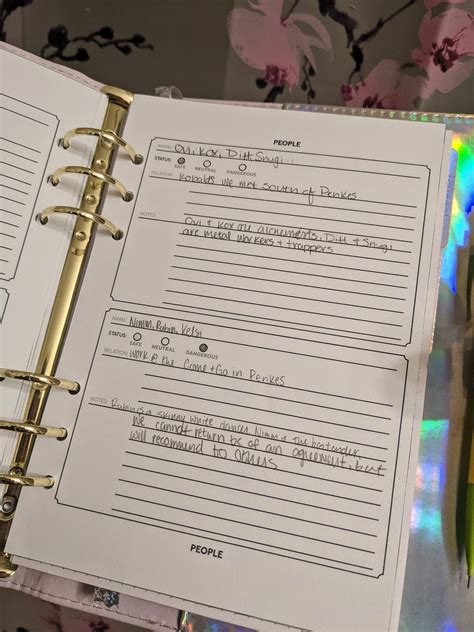 PEOPLE
NAME: Ovi, Kox, Ditt Snugi
STATUS: SAFE NEUTRAL DANGEROUS
RELATION: Kobalds we met south of Penkes
NOTES: Ovi & Kox are alchemists, Ditt & Snugi
are metal workers + trappers
NAME: Nimm, Rubin, Kelsi
STATUS: SAFE NEUTRAL DANGEROUS
RELATION: Work @ the Come + Go in Penkes
NOTES: Rubin is a skinny white dancer, Nimm is the bartender,
We cannot return bc of an agreement, but
will recommend to others
PEOPLE